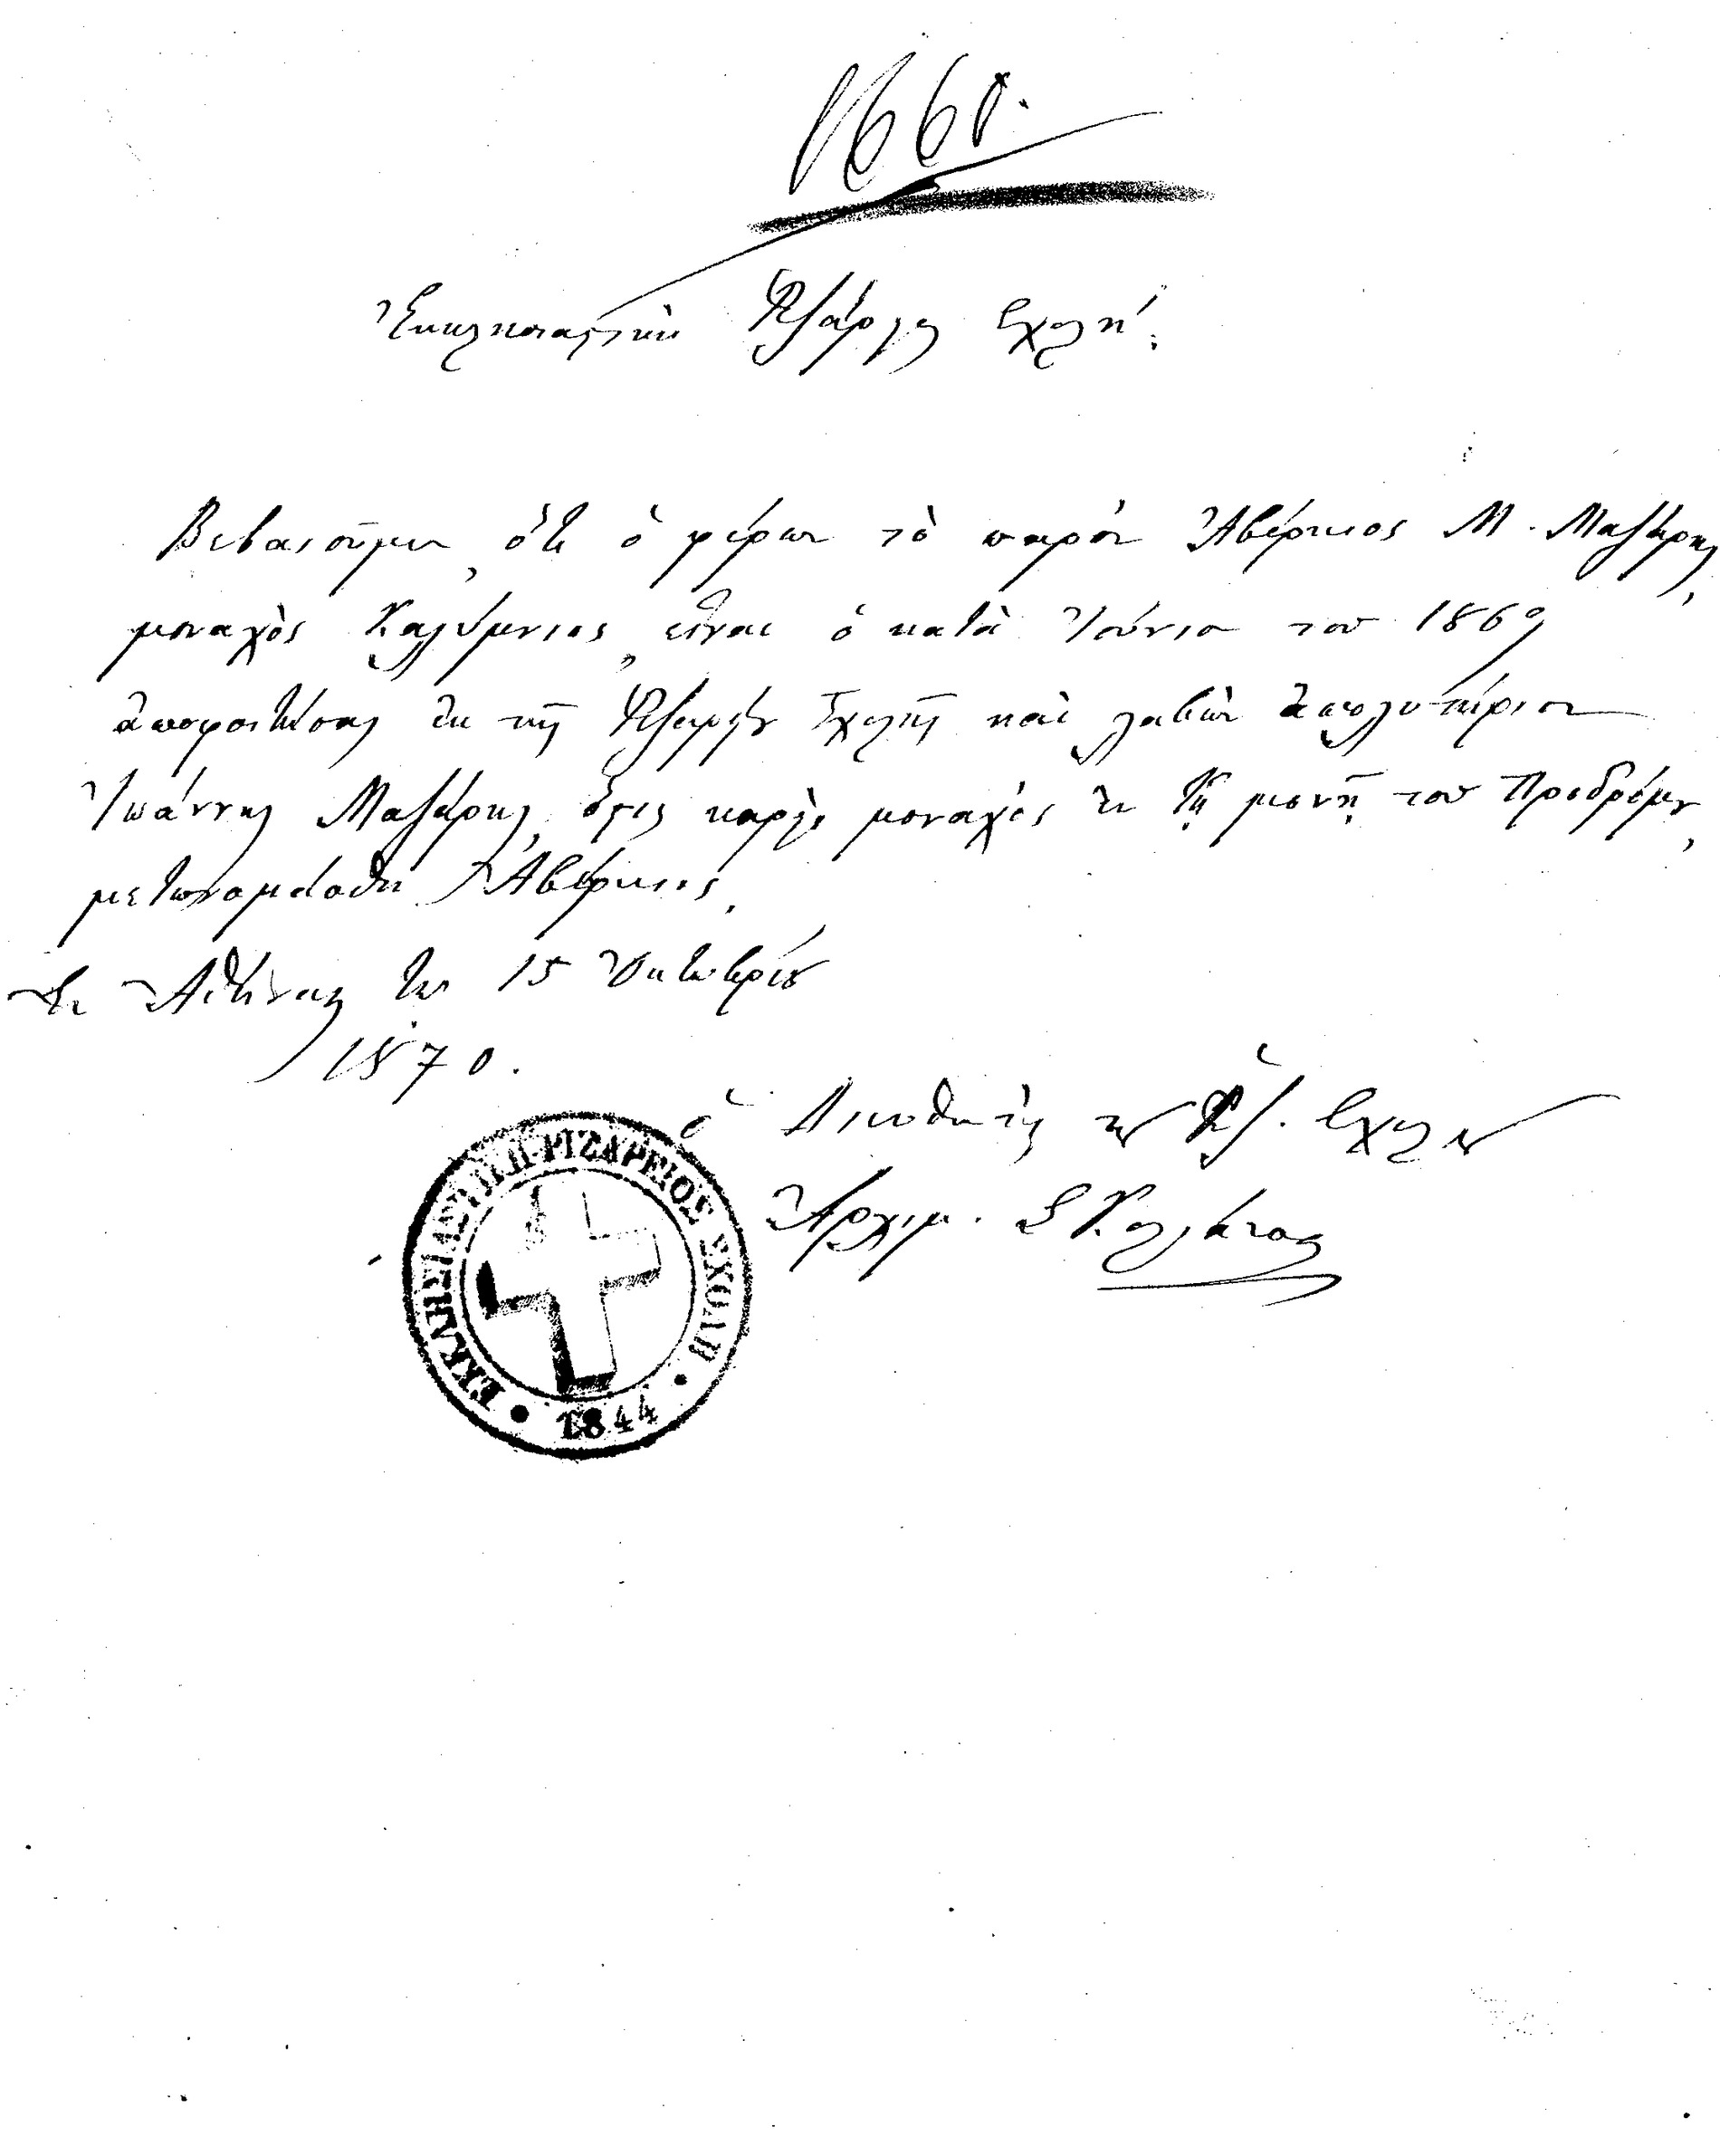 1668.
Ἐκκλησιαστικὴ Ῥιζάρειος Σχολή.
Βεβαιοῦμεν, ὅτι ὁ φέρων τὸ παρὸν Ἀβέρκιος Μ. Μαζάρης,
μοναχὸς Καλύμνιος, εἶναι ὁ κατὰ Ἰούνιον τοῦ 1869
ἀποφοιτήσας ἐκ τῆς Ῥιζαρείου Σχολῆς καὶ λαβὼν ἀπολυτήριον
Ἰωάννης Μαζάρης, ὅστις καρεὶς μοναχὸς ἐν τῇ μονῇ τοῦ Προδρόμου,
μετωνομάσθη Ἀβέρκιος.
Ἐν Ἀθήναις τῇ 15 Ὀκτωβρίου
1870.
ὁ Διευθυντὴς τῆς Ῥιζ. Σχολῆς
Ἀρχιμ. Σ Καλλιάτσας
ΕΚΚΛΗΣΙΑΣΤΙΚΗ ΡΙΖΑΡΕΙΟΣ ΣΧΟΛΗ
1844